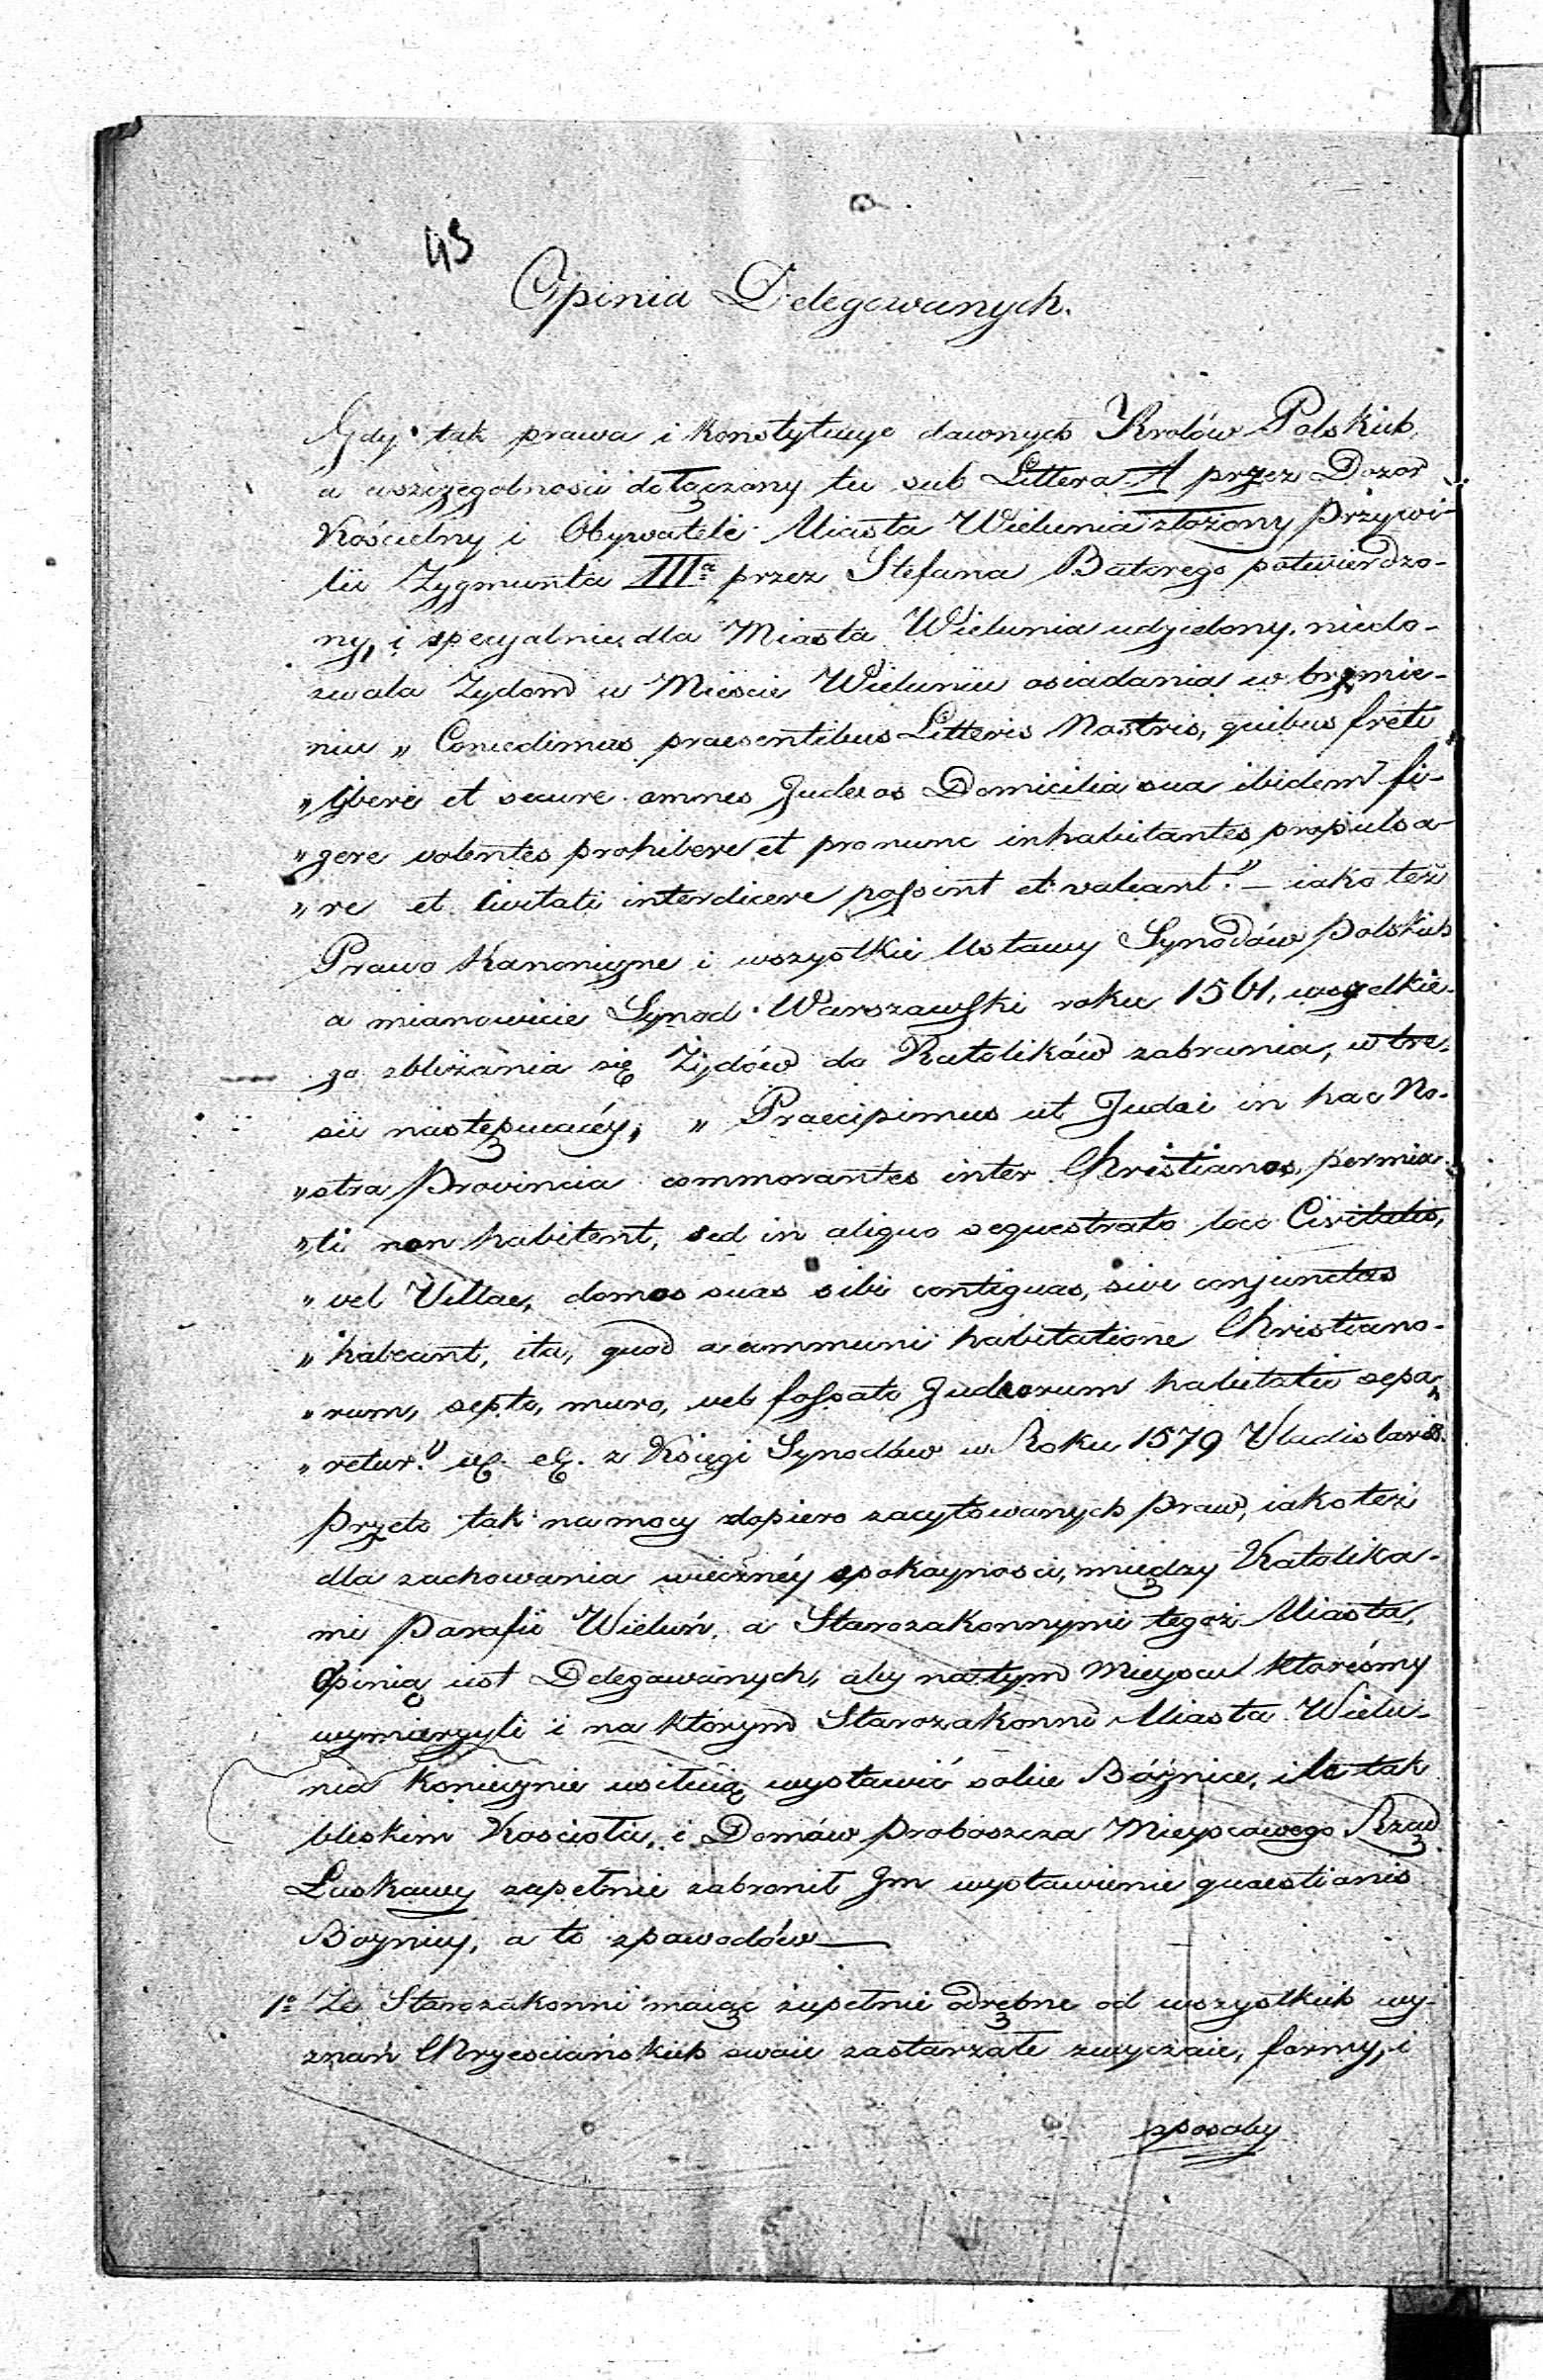 43
Opinia Delegowanych.
Gdy tak prawa i konstytucye dawnych Krolów Polskich,
a wszczegolnosci dołączony tu sub Littera A przez Dozor
Kościelny i Obywateli Miasta Wielunia złożony Przywi-
lii Zygmunta III<sup>a</sup> przez Stefana Batorego potwierdzo-
ny, i specyalnie dla Miasta Wielunia udzielony, niedo-
zwala Żydom w Miescie Wieluniu osiadania w brzmie-
niu „ Concedimus praesentibus Litteris Nostris, quibus freti
„ libere et secure omnes Judeos Domicilia sua ibidem fi-
„ gere volentes prohibere et pronunc inhabitantes propulsa-
„ re et Civitati interdicere possint et valeant." – iako też
Prawo Kanoniczne i wszystkie Ustawy Synodów Polskich
a mianowicie Synod Warszawski roku 1561, wszelkie-
go zbliżania się Żydów do Katolików zabrania, w tre-
sci następuiącéy, „ Praecipimus ut Judei in hac No-
„ stra Provincia commorantes inter Christianos, permix-
„ ti non habitent, sed in aliquo sequestrato loco Civitatis,
„ vel Villae, domos suas sibi contiguas, sive conjunctas
„ habeant, ita, quod a communi habitatione Christiano-
„ rum, septo, muro, vel fossato Judeorum habitatio sepa-
„ retur." etc. etc. z Księgi Synodów w Roku 1579 Vladislavis.
Przeto tak na mocy dopiero zacytowanych Praw, iako też
dla zachowania wiecznéy spokaynosci, między Katolika-
mi Parafii Wieluń, a Starozakonnymi tegoż Miasta,
Opinią iest Delegowanych, aby na tym Mieyscu któreśmy
wymierzyli i na którym Starozakonni Miasta Wielu-
nia koniecznie usiłuią wystawić sobie Bóżnice, ile tak
bliskim Kościoła, i Domów Proboszcza Mieyscowego Rząd
Łaskawy zupełnie zabronił Im wystawienie quaestionis
Bożnicy, a to zpowodów —
1º Że Starozakonni maiąc zupełnie odrębne od wszystkich wy-
znań Chrześciańskich swoie zastarzałe zwyczaie, formy, i
sposoby